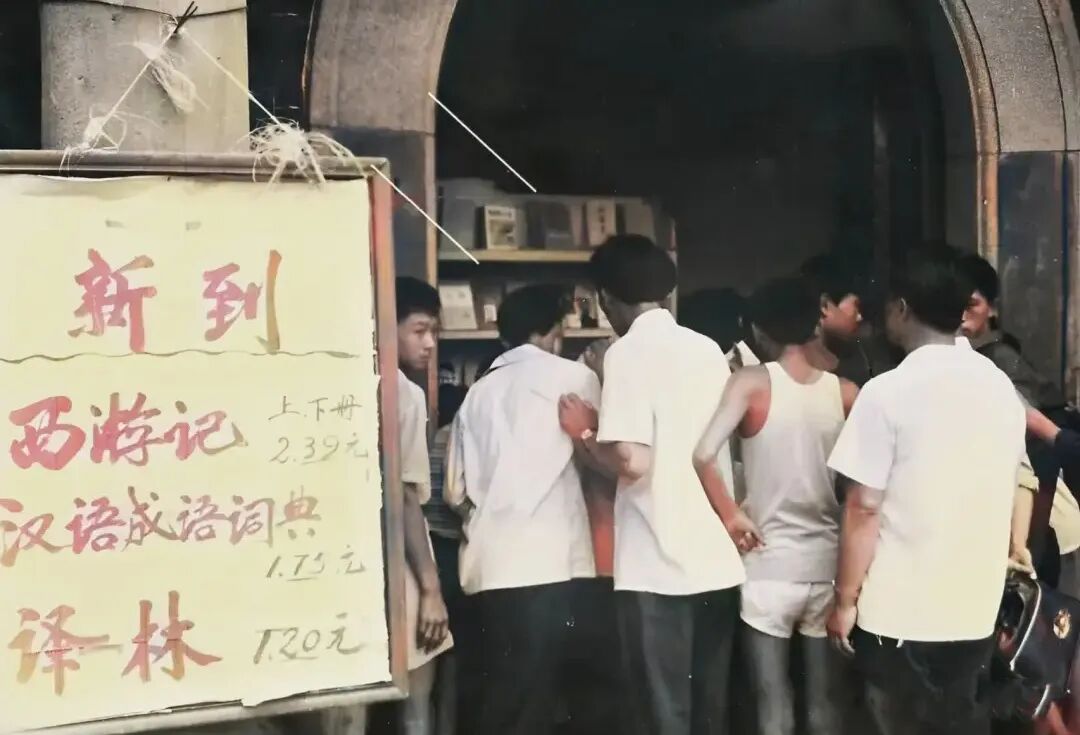 新到
西游记 上.下册
2.39元
汉语成语词典
1.75元
译林 1.20元